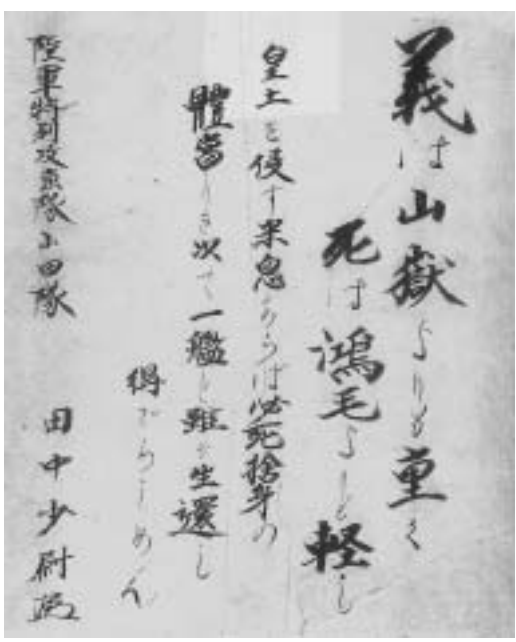 義は山嶽よりも重く
死は鴻毛よりも軽し
皇土を侵す米鬼あらば必死捨身の
體當りを以て一艦と雖も生還し
得ざらしめん
陸軍特別攻撃隊 田隊 田中少尉